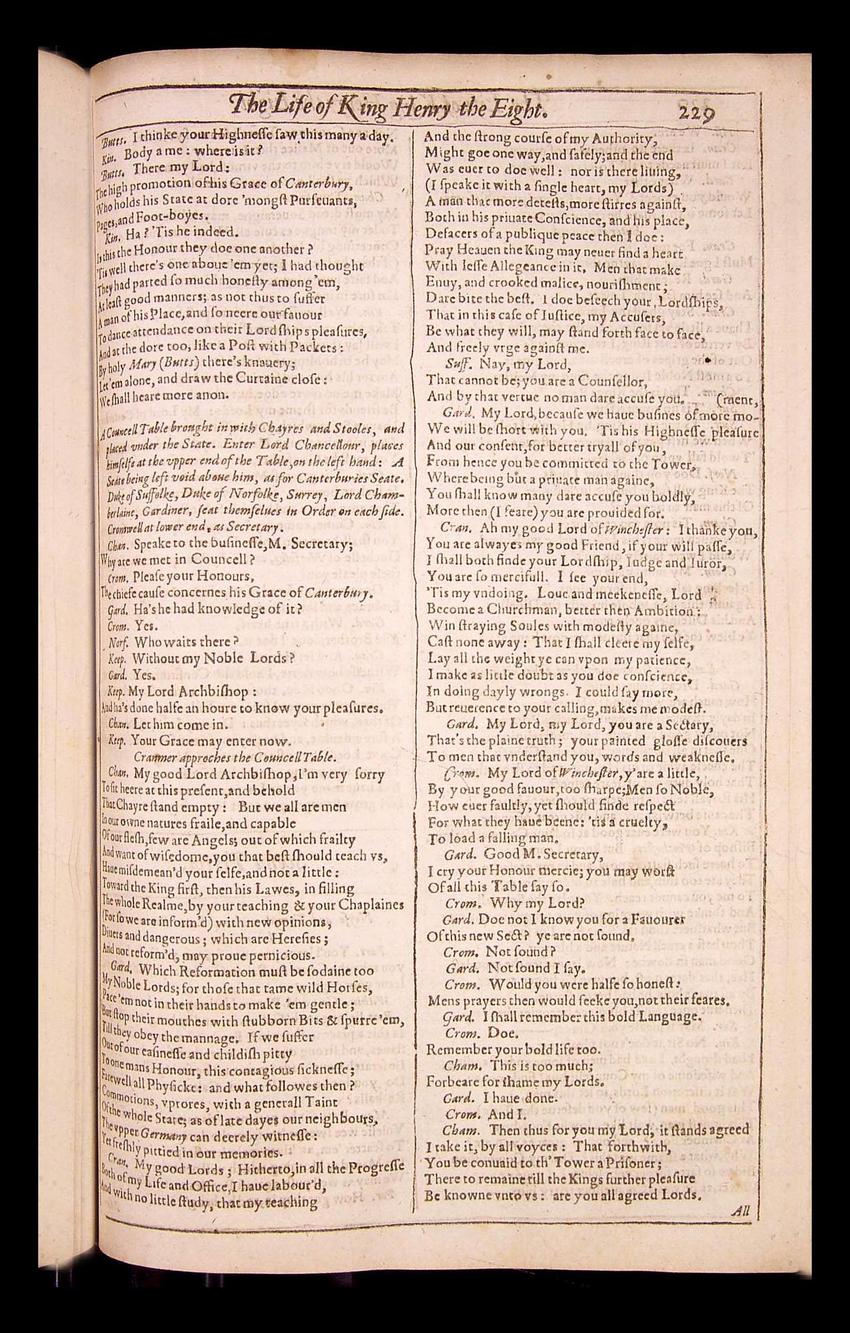 The Life of King Henry the Eight.
229
Butts. I thinke your Highnesse saw this many a day.
Kin. Body a me: where is it?
Butts. There my Lord:
The high promotion of his Grace of Canterbury,
Who holds his State at dore 'mongst Pursevants,
Pages, and Foot-boyes.
Kin. Ha? 'Tis he indeed.
Is this the Honour they doe one another?
'Tis well there's one aboue 'em yet; I had thought
They had parted so much honesty among 'em,
At least good manners; as not thus to suffer
A man of his Place, and so neere our fauour
To dance attendance on their Lordships pleasures,
And at the dore too, like a Post with Packets:
By holy Mary (Butts) there's knauery;
Let 'em alone, and draw the Curtaine close:
We shall heare more anon.
A Councell Table brought in with Chayres and Stooles, and
placed vnder the State. Enter Lord Chancellour, places
himselfe at the vpper end of the Table, on the left hand: A
Seate being left void aboue him, as for Canterburies Seate.
Duke of Suffolke, Duke of Norfolke, Surrey, Lord Cham-
berlaine, Gardiner, seat themselues in Order on each side.
Cromwell at lower end, as Secretary.
Chan. Speake to the businesse, M. Secretary;
Why are we met in Councell?
Crom. Please your Honours,
The chiefe cause concernes his Grace of Canterbury.
Gard. Ha's he had knowledge of it?
Crom. Yes.
Norf. Who waits there?
Keep. Without my Noble Lords?
Gard. Yes.
Keep. My Lord Archbishop:
And ha's done halfe an houre to know your pleasures.
Chan. Let him come in.
Keep. Your Grace may enter now.
Cranmer approches the Councell Table.
Chan. My good Lord Archbishop, I'm very sorry
To sit heere at this present, and behold
That Chayre stand empty: But we all are men
In our owne natures fraile, and capable
Of our flesh, few are Angels; out of which frailty
And want of wisedome, you that best should teach vs,
Haue misdemean'd your selfe, and not a little:
Toward the King first, then his Lawes, in filling
The whole Realme, by your teaching & your Chaplaines
(For so we are inform'd) with new opinions,
Diuers and dangerous; which are Heresies;
And not reform'd, may proue pernicious.
Gard. Which Reformation must be sodaine too
My Noble Lords; for those that tame wild Horses,
Pace 'em not in their hands to make 'em gentle;
But stop their mouthes with stubborn Bits & spurre 'em,
Till they obey the mannage. If we suffer
Out of our easinesse and childish pitty
To one mans Honour, this contagious sicknesse;
Farewell all Physicke: and what followes then?
Commotions, vprores, with a generall Taint
Of the whole State; as of late dayes our neighbours,
The vpper Germany can deerely witnesse:
Yet freshly pittied in our memories.
Cran. My good Lords; Hitherto, in all the Progresse
Both of my Life and Office, I haue labour'd,
And with no little study, that my teaching
And the strong course of my Authority,
Might goe one way, and safely; and the end
Was euer to doe well: nor is there liuing,
(I speake it with a single heart, my Lords)
A man that more detests, more stirres against,
Both in his priuate Conscience, and his place,
Defacers of a publique peace then I doe:
Pray Heauen the King may neuer find a heart
With lesse Allegeance in it. Men that make
Enuy, and crooked malice, nourishment;
Dare bite the best. I doe beseech your, Lordships,
That in this case of Iustice, my Accusers,
Be what they will, may stand forth face to face,
And freely vrge against me.
Suff. Nay, my Lord,
That cannot be; you are a Counsellor,
And by that vertue no man dare accuse you. (ment,
Gard. My Lord, because we haue busines of more mo-
We will be short with you. 'Tis his Highnesse pleasure
And our consent, for better tryall of you,
From hence you be committed to the Tower,
Where being but a priuate man againe,
You shall know many dare accuse you boldly,
More then (I feare) you are prouided for.
Cran. Ah my good Lord of Winchester: I thanke you,
You are alwayes my good Friend, if your will passe,
I shall both finde your Lordship, Iudge and Iuror,
You are so mercifull. I see your end,
'Tis my vndoing. Loue and meekenesse, Lord
Become a Churchman, better then Ambition:
Win straying Soules with modesty againe,
Cast none away: That I shall cleere my selfe,
Lay all the weight ye can vpon my patience,
I make as little doubt as you doe conscience,
In doing dayly wrongs. I could say more,
But reuerence to your calling, makes me modest.
Gard. My Lord, my Lord, you are a Sectary,
That's the plaine truth; your painted glosse discouers
To men that vnderstand you, words and weaknesse.
Crom. My Lord of Winchester, y'are a little,
By your good fauour, too sharpe; Men so Noble,
How euer faultly, yet should finde respect
For what they haue beene: 'tis a cruelty,
To load a falling man.
Gard. Good M. Secretary,
I cry your Honour mercie; you may worst
Of all this Table say so.
Crom. Why my Lord?
Gard. Doe not I know you for a Fauourer
Of this new Sect? ye are not sound.
Crom. Not sound?
Gard. Not sound I say.
Crom. Would you were halfe so honest:
Mens prayers then would seeke you, not their feares.
Gard. I shall remember this bold Language.
Crom. Doe.
Remember your bold life too.
Cham. This is too much;
Forbeare for shame my Lords.
Gard. I haue done.
Crom. And I.
Cham. Then thus for you my Lord, it stands agreed
I take it, by all voyces: That forthwith,
You be conuaid to th' Tower a Prisoner;
There to remaine till the Kings further pleasure
Be knowne vnto vs: are you all agreed Lords.
All